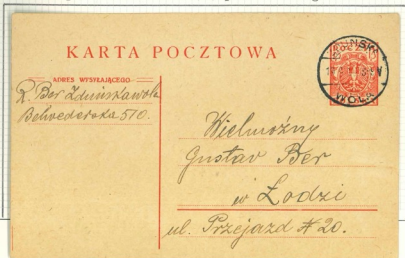 KARTA POCZTOWA
ADRES WYSYŁAJĄCEGO
R. Ber Zduńskawola
Belwederska 510.
Wielmożny
Gustav Ber
w Łodzi
ul. Przejazd # 20.
WOLA